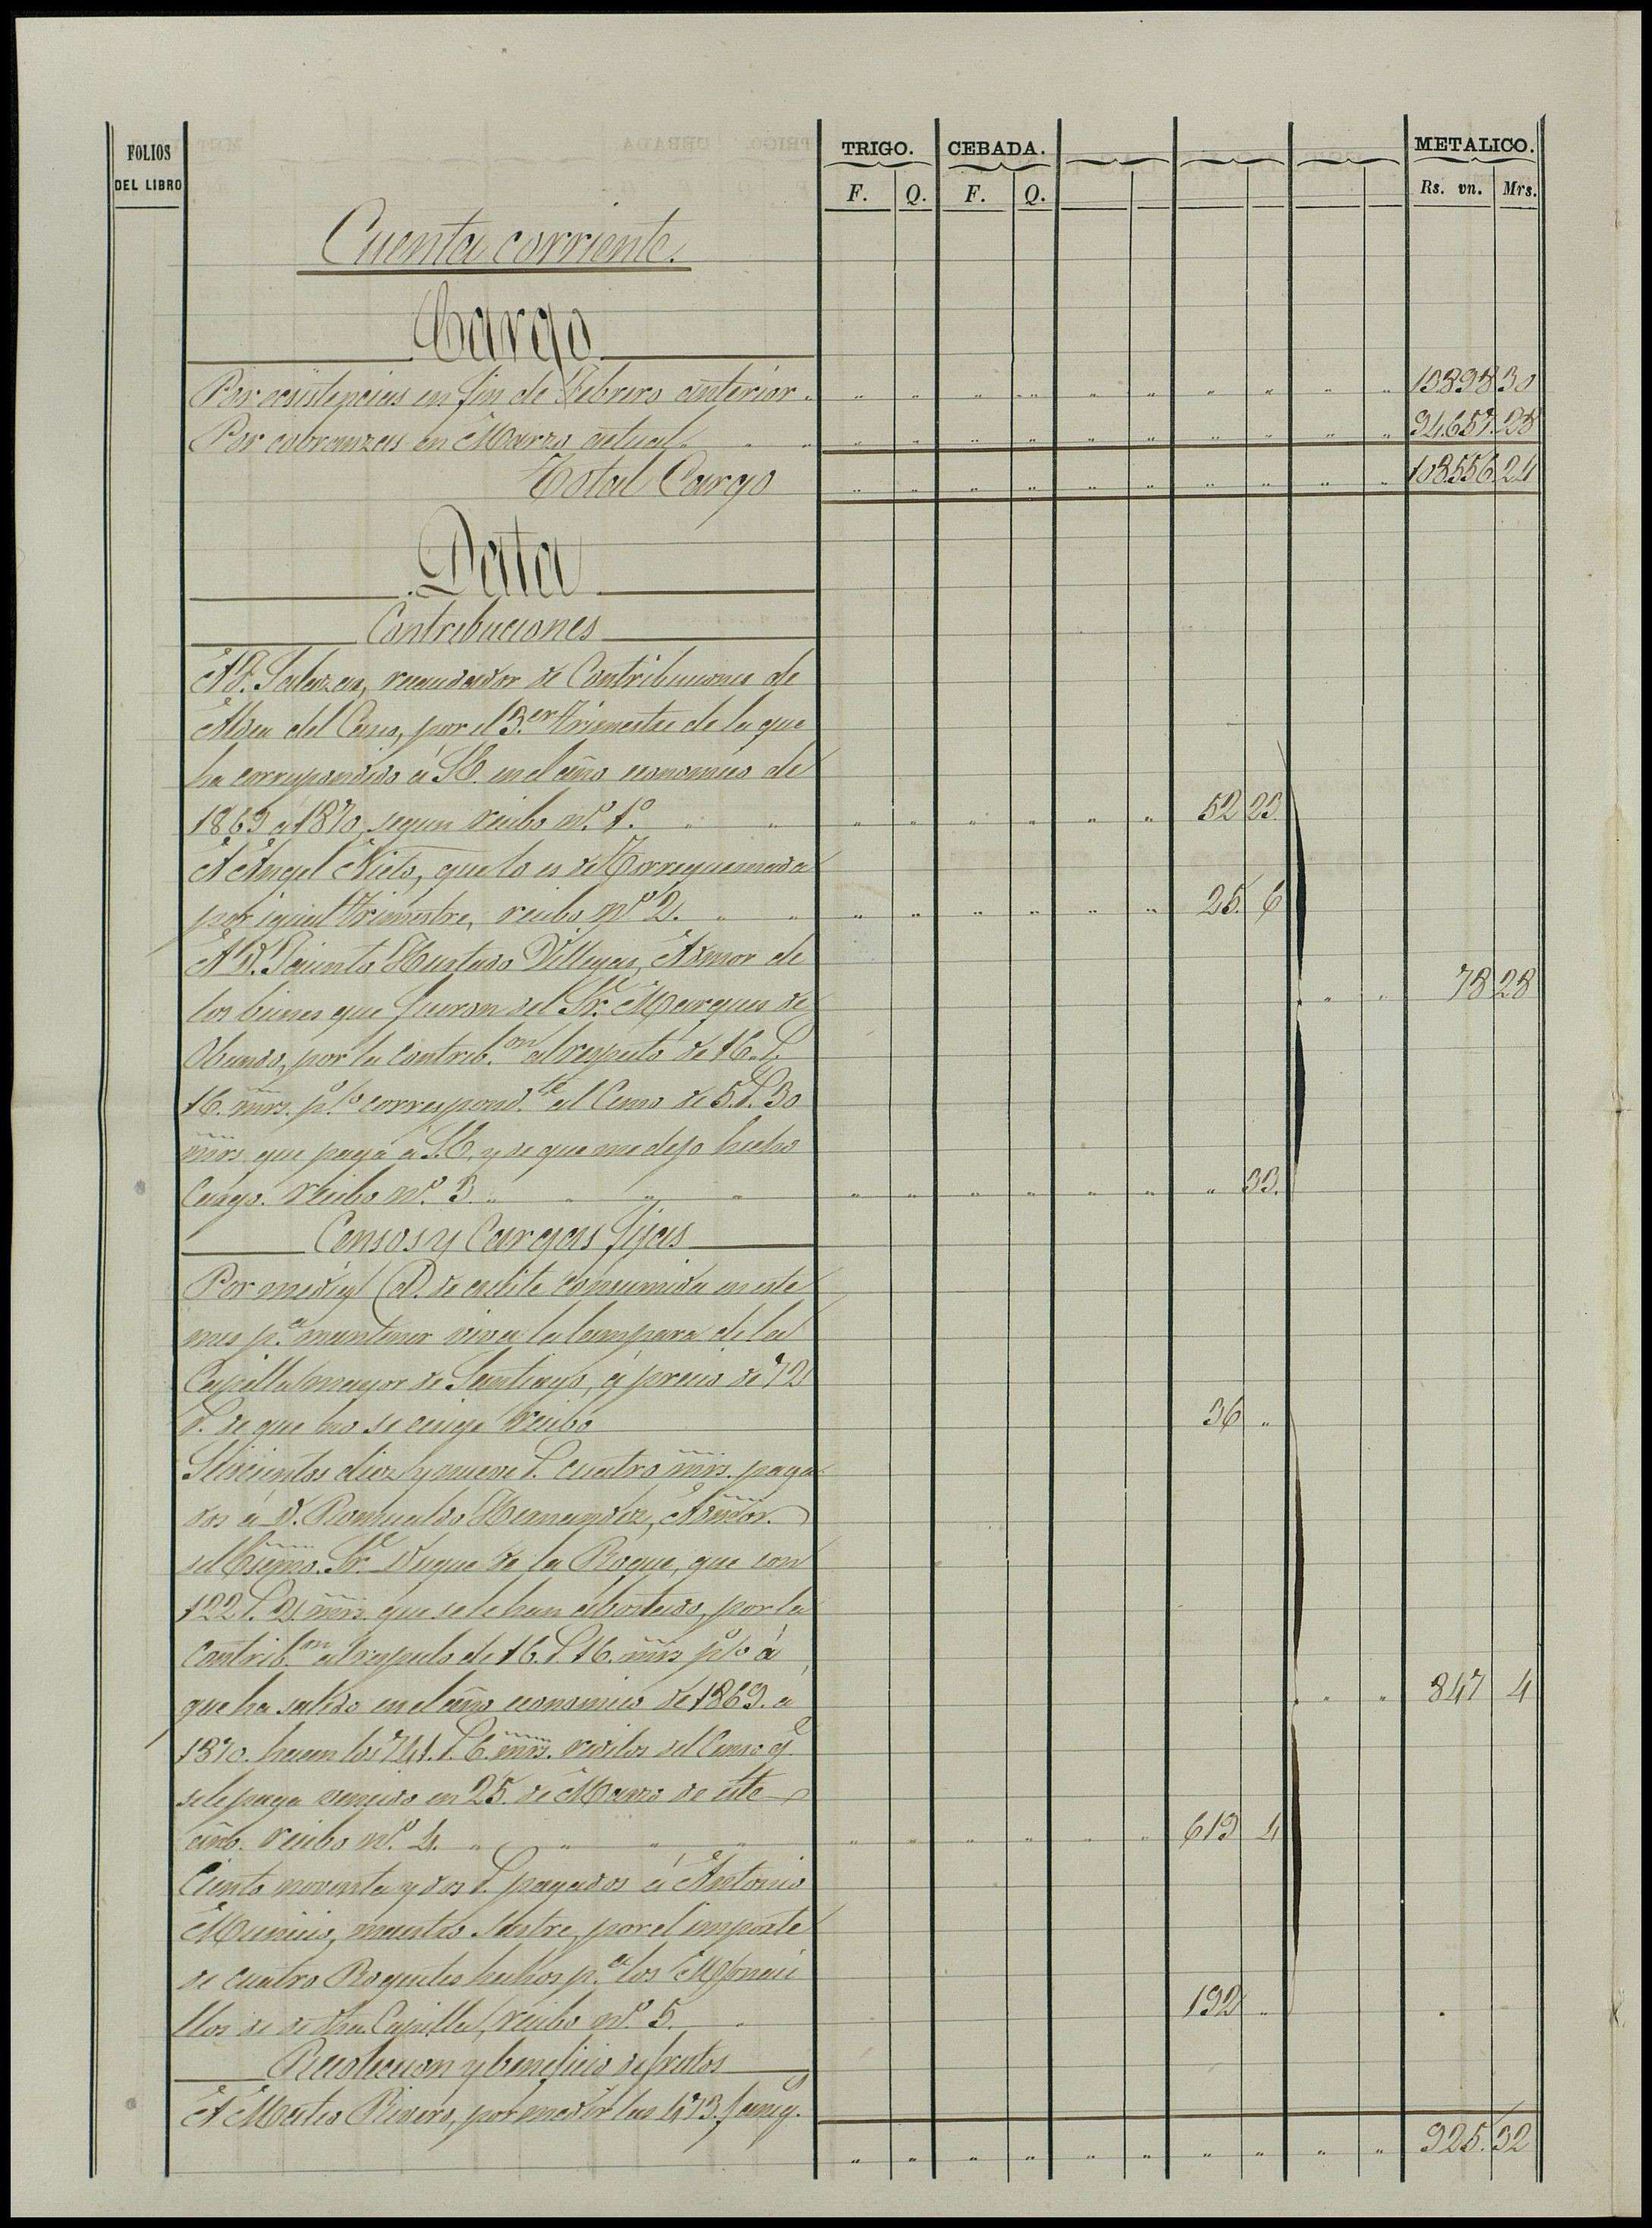 FOLIOS
DEL LIBRO
TRIGO. CEBADA. METALICO.
F. Q. F. Q. Rs. vn. Mrs.
Cuenta corriente.
Cargo
Por existencias en fin de Febrero anterior " " " " " " " " " " " 13.898 30
Por cobranzas en Marzo actual " " " " " " " " " " " 94.657. 28
Total Cargo " " " " " " " " " " 108.556. 24
Data
Contribuciones
A D. Salazar, recaudador de Contribuciones de
Aldea del Cano, por el 3.er trimestre de la que
ha correspondido á S.E. en el año economico de
1869 á 1870, segun recibo nº. 1º. " " " " " " " " 52 23.
A Angel Nieto, que lo es de Torrequemada
por igual trimestre, recibo nº 2. " " " " " " " " 25. 6
A D. Jacinto Hurtado Villegas, Admor de
los bienes que fueron del Sr. Marques de " " 78 28
Obando, por la contrib.on al respeto de 16. r.
16. mrs. p.o/o correspond.te al Censo de 5. r. 30
mrs que paga á S.E. y de que me dejo hecho
Cargo. Recibo nº. 3. " " " " " " " " " " 33.
Censos y Cargas fijas
Por media @. de aceite consumida en este
mes p.a mantener viva la lampara de la
Capilla mayor de Santiago, á precio de 72
r. de que no se exige recibo 36 "
Seiscientos diez y nueve r. cuatro mrs. paga
dos á D. Romualdo Hernandez, Admor.
del Excmo. Sr. Duque de la Roque, que con
122 r. 2 mrs. que se le han abonado, por la
contrib.on al respeto de 16. r. 16. mrs p.o/o á
que ha salido en el año economico de 1869. a " " 847 4
1870. hacen los 741. r. 6. mrs. reditos del Censo q.e
se le paga vencido en 25. de Marzo de este
año. Recibo nº. 4. " " " " " " " " " " 619 4
Ciento noventa y dos r. pagados á Antonio
maestro sastre, por el importe
de cuatro Roquetes hechos p.a los Monaci
llos de dha. Capilla, recibo nº. 5. " 192 "
Recoleccion y beneficio de frutos
A Mateo Rivero, por medir las 473. faneg.s
" " " " " " " " " " 925. 32